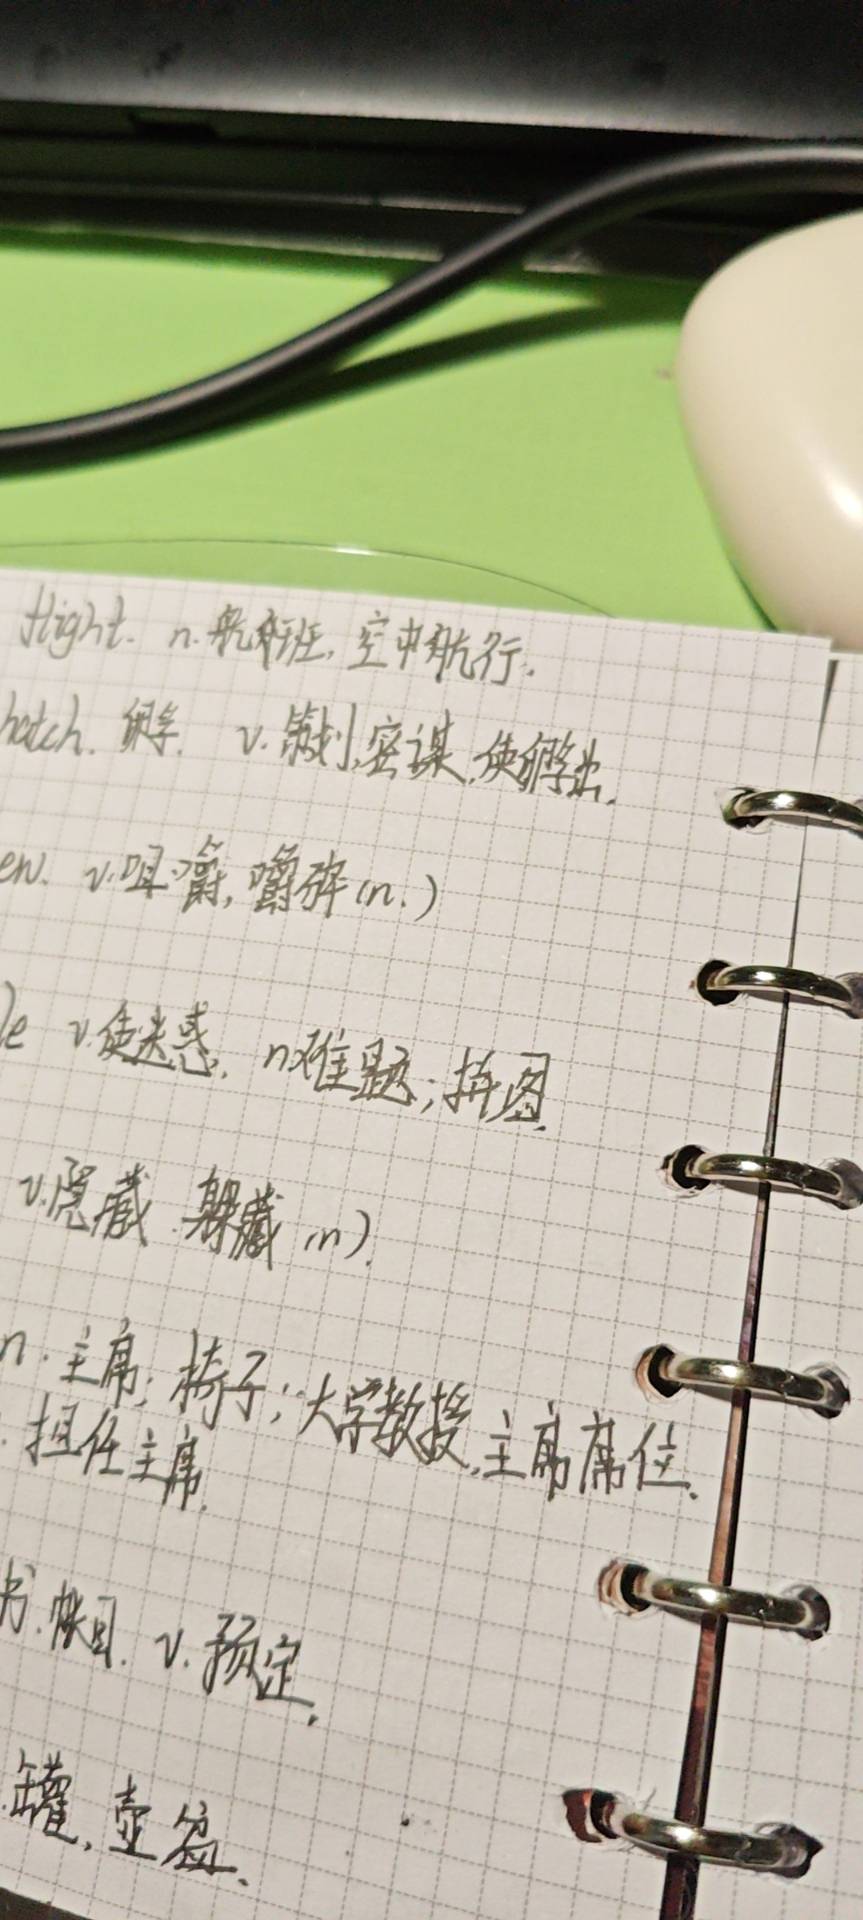 flight. n.航班,空中航行.
hatch. 孵. v.策划,密谋,使孵出.
ew. v.咀嚼,嚼碎(n.)
le v.使迷惑. n难题;拼图.
v.隐藏 躲藏 (n).
n.主席;椅子;大学教授,主席席位.
.担任主席.
书.帐目. v.预定.
罐,壶盆.